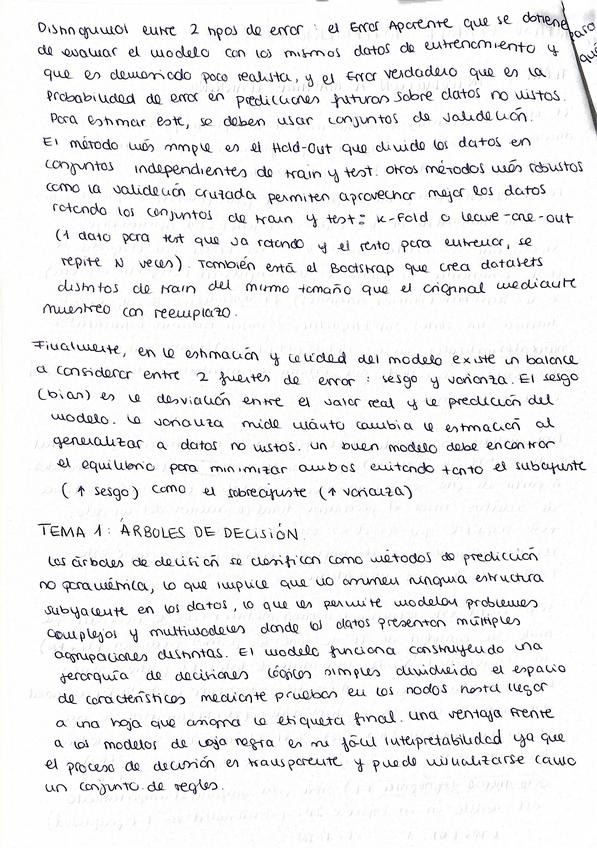 Distinguimos entre 2 tipos de error: el Error Aparente que se obtiene
de evaluar el modelo con los mismos datos de entrenamiento y
que es demasiado poco realista, y el Error verdadero que es la
probabilidad de error en predicciones futuras sobre datos no vistos.
Para estimar este, se deben usar conjuntos de validación.
El método más simple es el Hold-Out que divide los datos en
conjuntos independientes de train y test. Otros métodos más robustos
como la validación cruzada permiten aprovechar mejor los datos
rotando los conjuntos de train y test: K-Fold o leave-one-out
(1 dato para test que va rotando y el resto para entrenar, se
repite N veces) También está el Bootstrap que crea datasets
distintos de train del mismo tamaño que el original mediante
muestreo con reemplazo.
Finalmente, en la estimación y calidad del modelo existe un balance
a considerar entre 2 fuentes de error: sesgo y varianza. El sesgo
(bias) es la desviación entre el valor real y la predicción del
modelo. La varianza mide cuánto cambia la estimación al
generalizar a datos no vistos. Un buen modelo debe encontrar
el equilibrio para minimizar ambos evitando tanto el subajuste
(↑ sesgo) como el sobreajuste (↑ varianza)
TEMA 1: ÁRBOLES DE DECISIÓN.
Los árboles de decisión se clasifican como métodos de predicción
no paramétrica, lo que implica que no asumen ninguna estructura
subyacente en los datos, lo que les permite modelar problemas
complejos y multimodales donde los datos presentan múltiples
agrupaciones distintas. El modelo funciona construyendo una
jerarquía de decisiones lógicas simples dividiendo el espacio
de características mediante pruebas en los nodos hasta llegar
a una hoja que asigna la etiqueta final. Una ventaja frente
a los modelos de caja negra es su fácil interpretabilidad ya que
el proceso de decisión es transparente y puede visualizarse como
un conjunto de reglas.